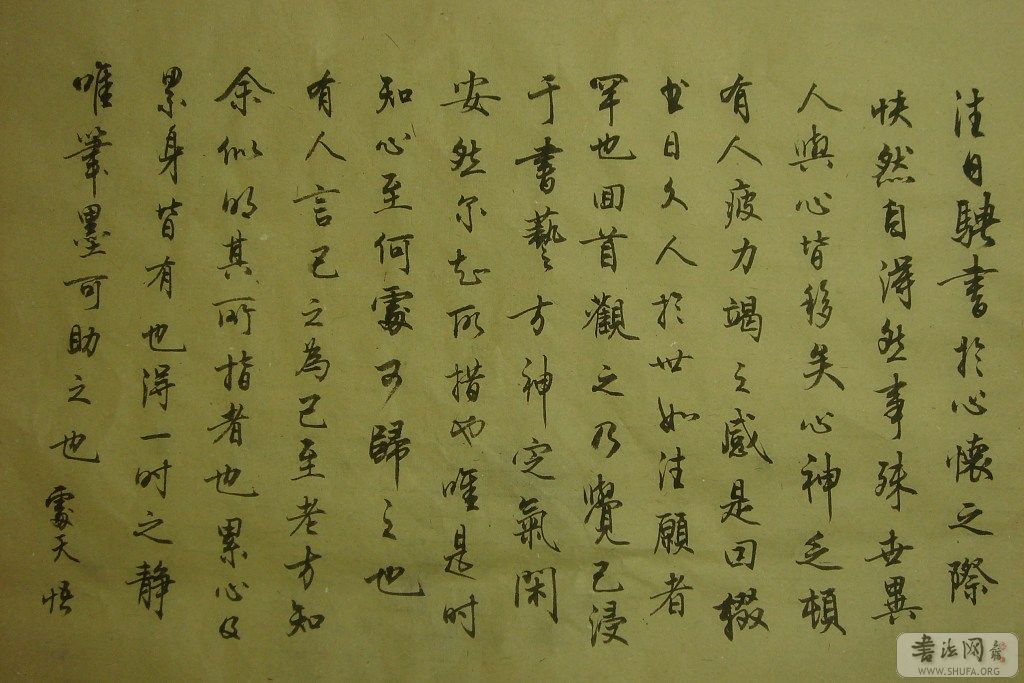 往日騁書於心懷之際
快然自得然事殊世異
人與心皆移矣心神乏頓
有人疲力竭之感是因輟
书日久人於世如往願者
罕也回首觀之乃覺己浸
于書藝方神定氣閑
安然尔起所措也唯是时
知心至何處可歸之也
有人言己之為己至老方知
余似明其所指者也累心及
累身皆有也得一时之静
唯筆墨可助之也
處天悟
書法网
WWW.SHUFA.ORG